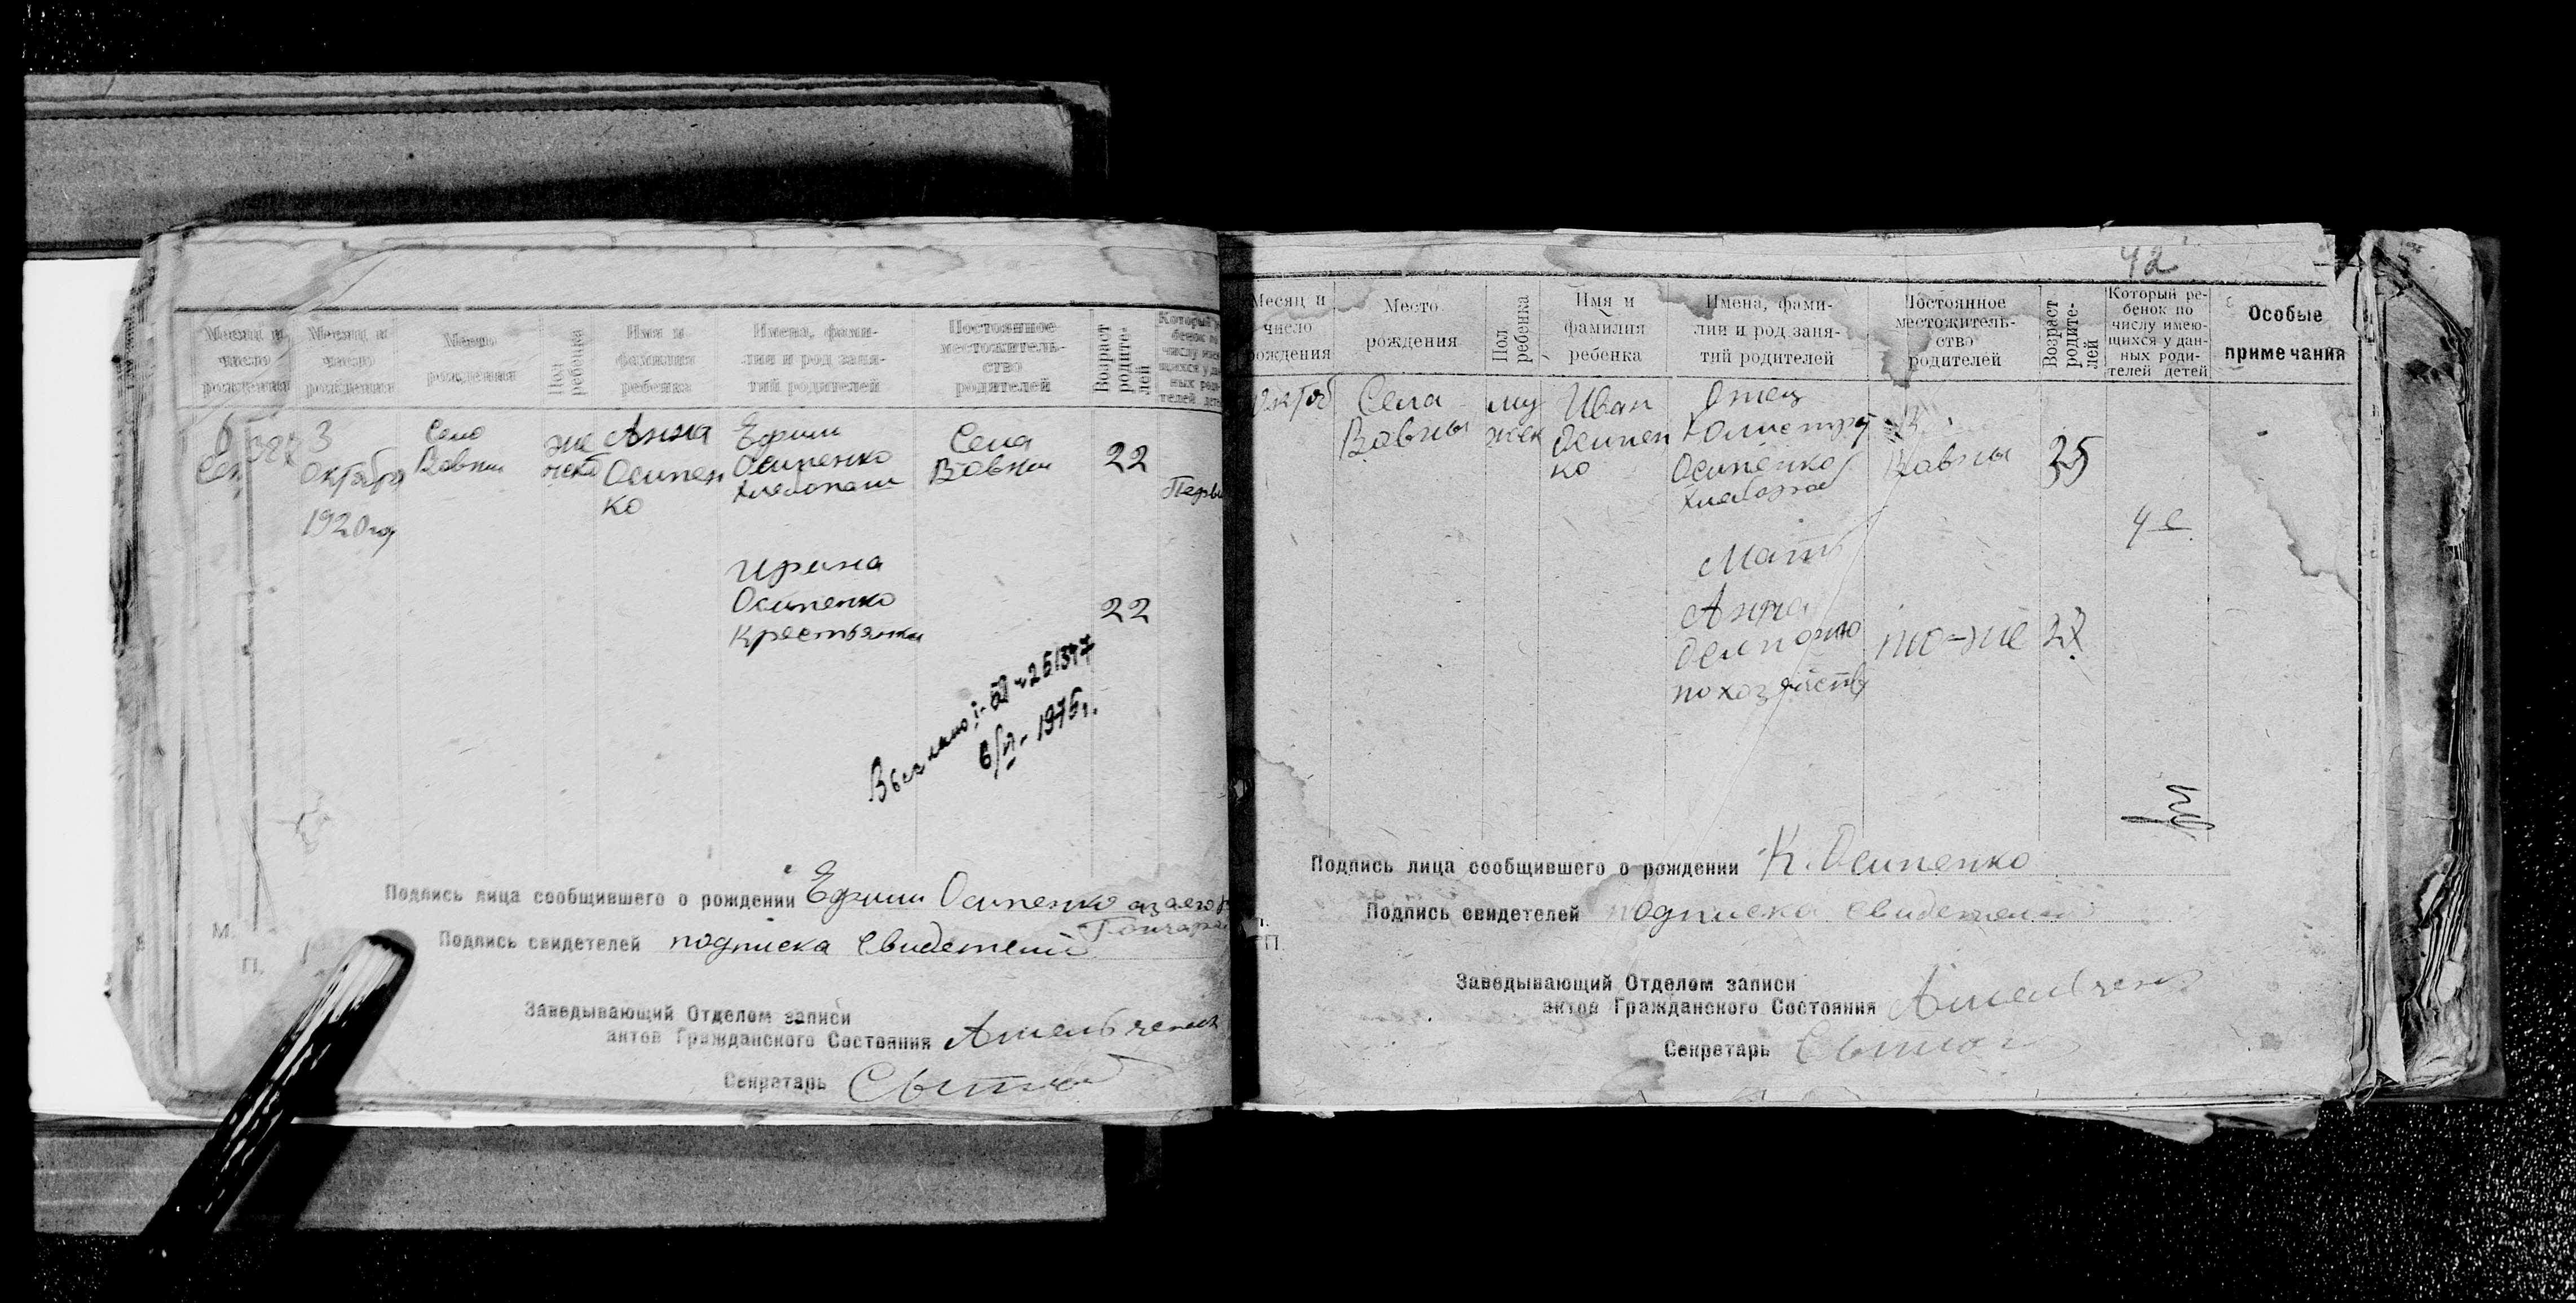 Месяц и
число
рождения
Месяц и
число
рождения
Место
рождения
Пол
ребенка
Имя и
фамилия
ребенка
Имена, фами-
лии и род заня-
тий родителей
Постоянное
местожитель-
ство
родителей
Возраст
родите-
лей
3
Октября
1920 год
Село
Вовны
же
нско
Анна
Осипен
ко
Ефим
Осипенко
хлебопаш
Села
Вовны
22
Первы
Ирина
Осипенко
Крестьянка
22
6/VI - 1976 г.
Подпись лица сообщившего о рождении Ефим Осипенко
Подпись свидетелей подписка свидетелей
М.
П.
Заведывающий Отделом записи
актов Гражданского Состояния
Секретарь
42
Месяц и
число
рождения
Место
рождения
Пол
ребенка
Имя и
фамилия
ребенка
Имена, фами-
лии и род заня-
тий родителей
Постоянное
местожитель-
ство
родителей
Возраст
родите-
лей
Который ре-
бенок по
числу имею-
щихся у дан-
ных роди-
телей детей
Особые
примечания
Села
Вовны
му
жск
Иван
Осипен
ко
Отец
Осипенко
Вовны
25
Мать
Анна
Осипенко
то-же
по хозяйству
Подпись лица сообщившего о рождении К. Осипенко
Подпись свидетелей подписка свидетелей
П.
Заведывающий Отделом записи
актов Гражданского Состояния
Секретарь